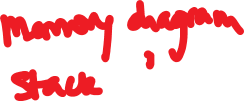 Memory diagram
, 
Stack